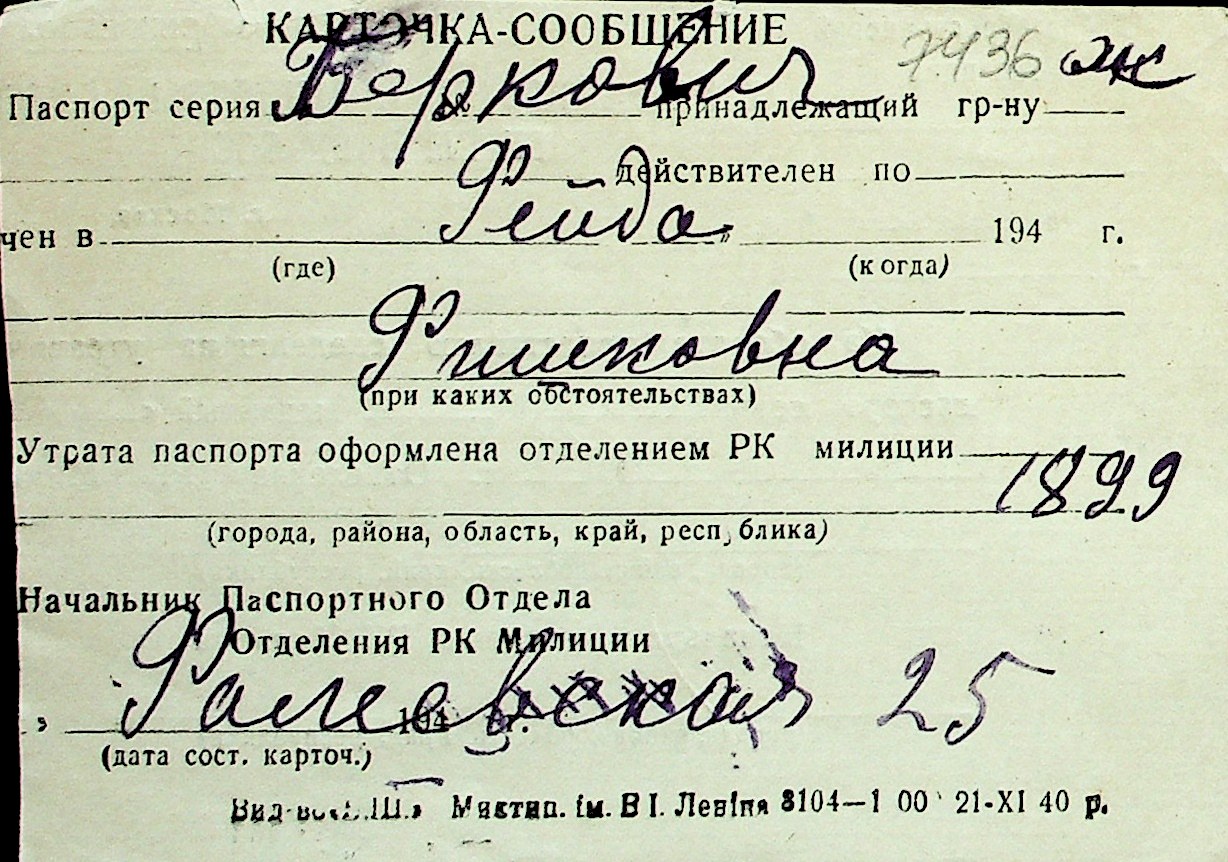 КАРТОЧКА-СООБЩЕНИЕ
7436 эж
Беркович
Паспорт серия № принадлежащий гр-ну
Фейда
действителен по
чен в " 194 г.
(где) (когда)
Фишковна
(при каких обстоятельствах)
Утрата паспорта оформлена отделением РК милиции
1899
(города, района, область, край, республика)
Начальник Паспортного Отдела
Отделения РК Милиции
25
194 г.
(дата сост. карточ.)
Вид-во Мистип. ім. В І. Леніна 3104—1 00 21-XI 40 р.